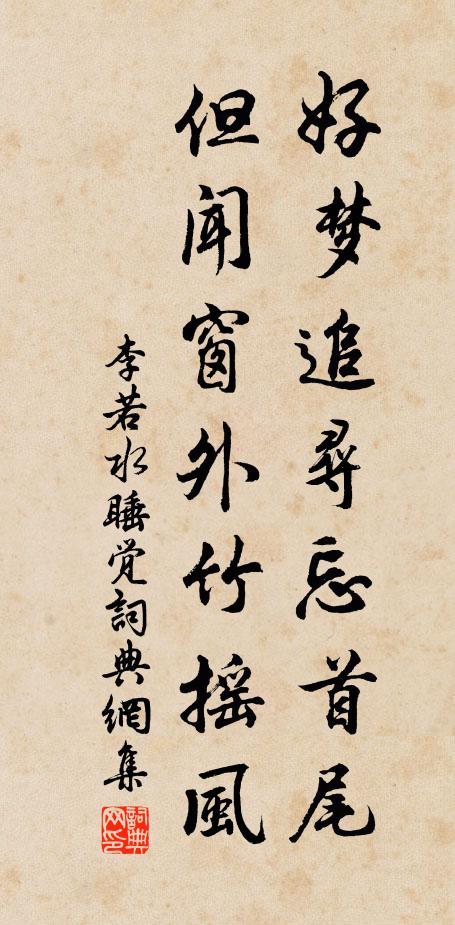 好梦追尋忘首尾
但闻窗外竹摇風
李若水睡觉詞典網集
詞典网印